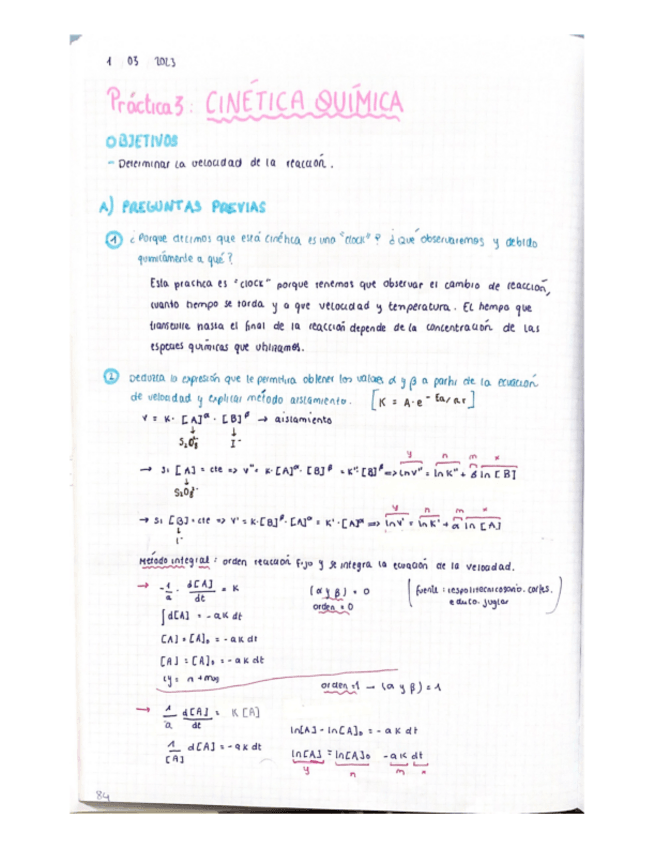 1 03 2023
Práctica 3: CINÉTICA QUÍMICA
OBJETIVOS
- Determinar la velocidad de la reacción.
A) PREGUNTAS PREVIAS
① ¿Porque decimos que esta cinética es una "clock"? ¿Qué observaremos y debido
químicamente a qué?
Esta practica es "clock" porque tenemos que observar el cambio de reacción,
cuanto tiempo se tarda y a que velocidad y temperatura. El tiempo que
transcurre hasta el final de la reacción depende de la concentración de las
especies químicas que utilizamos.
② Deduzca la expresión que le permitiría obtener los valores α y β a partir de la ecuación
de velocidad y explicar método aislamiento. [K = A·e
V = K· [A]^α · [B]^β → aislamiento
↓ ↓
S₂O₈²⁻ I⁻
y n m x
→ Si [A] = cte => V" = K·[A]^α · [B]^β = K"·[B]^β => ln V" = ln K" + β ln [B]
↓
S₂O₈²⁻
y n m x
→ Si [B] = cte => V' = K·[B]^β · [A]^α = K'·[A]^α => ln V' = ln K' + α ln [A]
↓
I⁻
Método integral: orden reacción fijo y se integra la ecuación de la velocidad.
→ -1/a · d[A]/dt = K (α y β) = 0 (fuente:
orden = 0
∫d[A] = -aK dt
[A] = [A]₀ = -aK dt
[A] = [A]₀ = -aK dt
orden = 1 → (α y β) = 1
→ 1/a d[A]/dt = K [A]
ln[A] - ln[A]₀ = -aK dt
1/[A] d[A] = -aK dt
ln[A] = ln[A]₀ -aK dt
y n m x
84